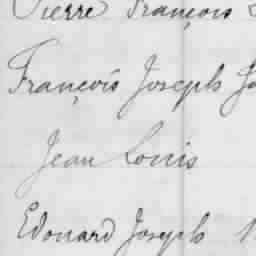 Pierre François
François Joseph
Jean Louis
Edouard Joseph